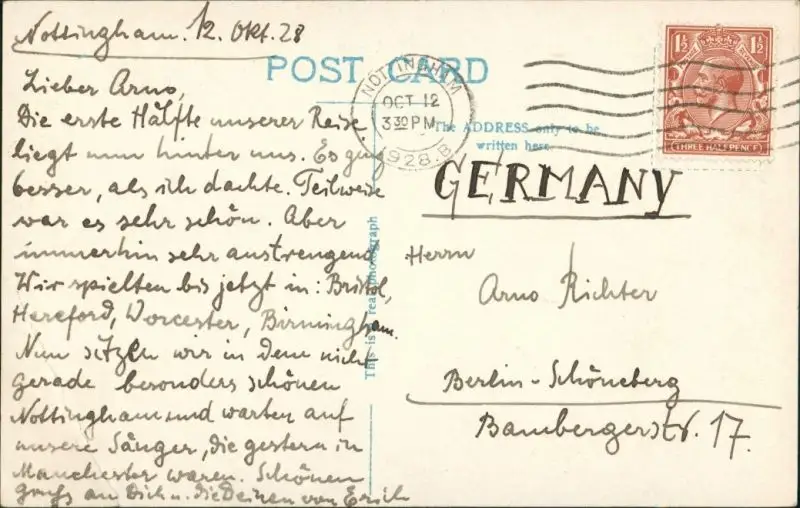 Nottingham. 12. Okt. 28
POST CARD
Lieber Arno,
Die erste Hälfte unserer Reise
liegt nun hinter uns. Es ging
besser, als ich dachte. Teilweise
war es sehr schön. Aber
immerhin sehr anstrengend
Wir spielten bis jetzt in: Bristol,
Hereford, Worcester, Birmingham.
Nun sitzen wir in dem nicht
gerade besonders schönen
Nottingham und warten auf
unsere Sänger, die gestern in
Manchester waren. Schönen
Gruß an Dich u. die Deinen von Erich
This is a real photograph
NOTTINGHAM
OCT 12
3 30 PM
1928. B
1½ 1½
THREE HALFPENCE
The ADDRESS only to be
written here
GERMANY
Herrn
Arno Richter
Berlin-Schöneberg
Bambergerstr. 17.